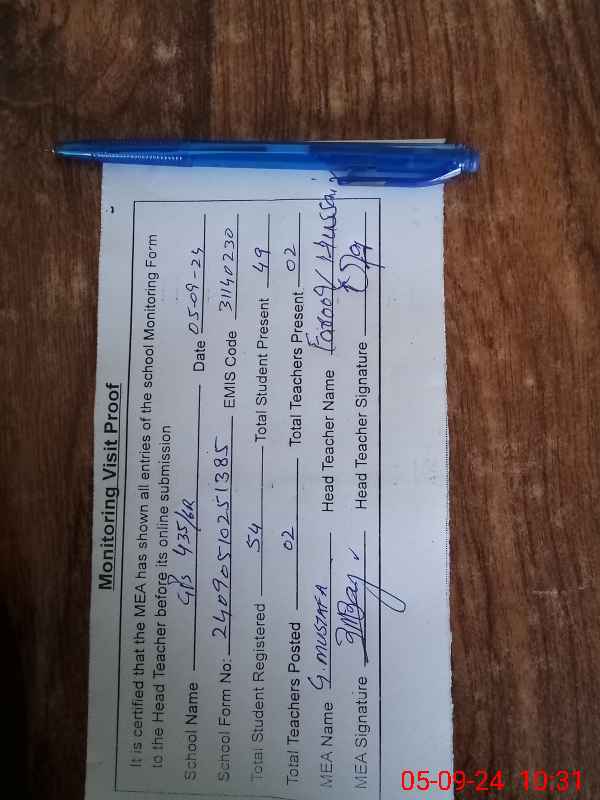 Monitoring Visit Proof
It is certified that the MEA has shown all entries of the school Monitoring Form
to the Head Teacher before its online submission
School Name GPS 435/6R Date 05-09-24
School Form No: 24090510251385 EMIS Code 31140230
Total Student Registered 54 Total Student Present 49
Total Teachers Posted 02 Total Teachers Present 02
MEA Name G. MUSTAFA Head Teacher Name Farooq Hussain
MEA Signature Head Teacher Signature
05-09-24 10:31